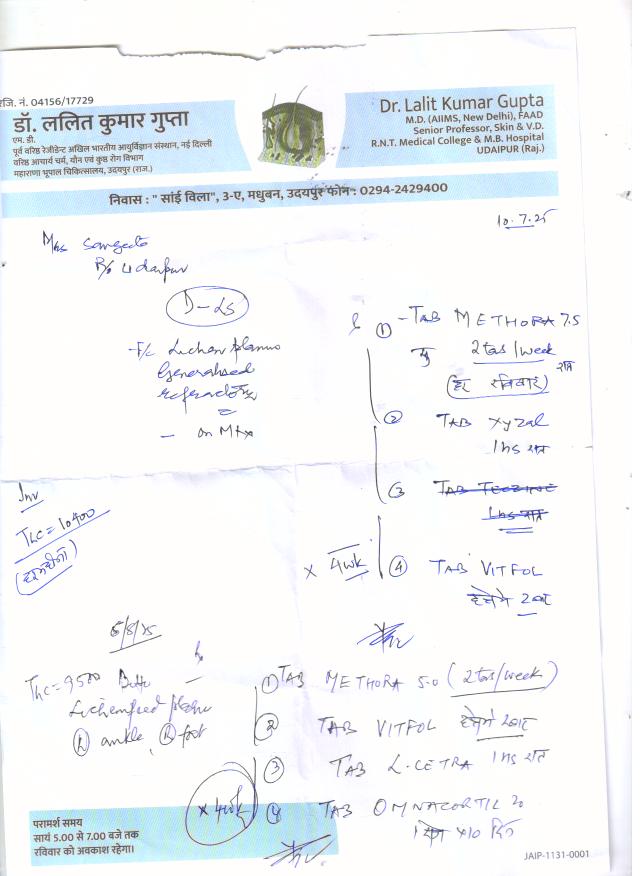 रजि. नं. 04156/17729
डॉ. ललित कुमार गुप्ता
एम. डी.
पूर्व वरिष्ठ रेजीडेन्ट अखिल भारतीय आयुर्विज्ञान संस्थान, नई दिल्ली
वरिष्ठ आचार्य चर्म, यौन एवं कुष्ठ रोग विभाग
महाराणा भूपाल चिकित्सालय, उदयपुर (राज.)
Dr. Lalit Kumar Gupta
M.D. (AIIMS, New Delhi), FAAD
Senior Professor, Skin & V.D.
R.N.T. Medical College & M.B. Hospital
UDAIPUR (Raj.)
निवास : " सांई विला", 3-ए, मधुबन, उदयपुर फोन : 0294-2429400
10.7.25
Mrs Sangeeta
R/o Udaipur
F/c Lichen planus
Generalised
refractory
- on Mtx
① -TAB METHORA 7.5
2 tas/week
(हर रविवार) रात
② TAB Xyzal
1 hs रात
③ TAB TECZINE
1 hs रात
④ TAB VITFOL
हफ्ते में 2 बार
x 4wk
Inv
TLC = 10400
5/8/25
TLC = 9500
ankle, foot
① TAB METHORA 5.0 (2 tas/week)
② TAB VITFOL हफ्ते में 2 बार
③ TAB L-CETRA 1 hs रात
④ TAB OMNACORTIL 20
x10 दिन
x 4wk
परामर्श समय
सायं 5.00 से 7.00 बजे तक
रविवार को अवकाश रहेगा।
JAIP-1131-0001